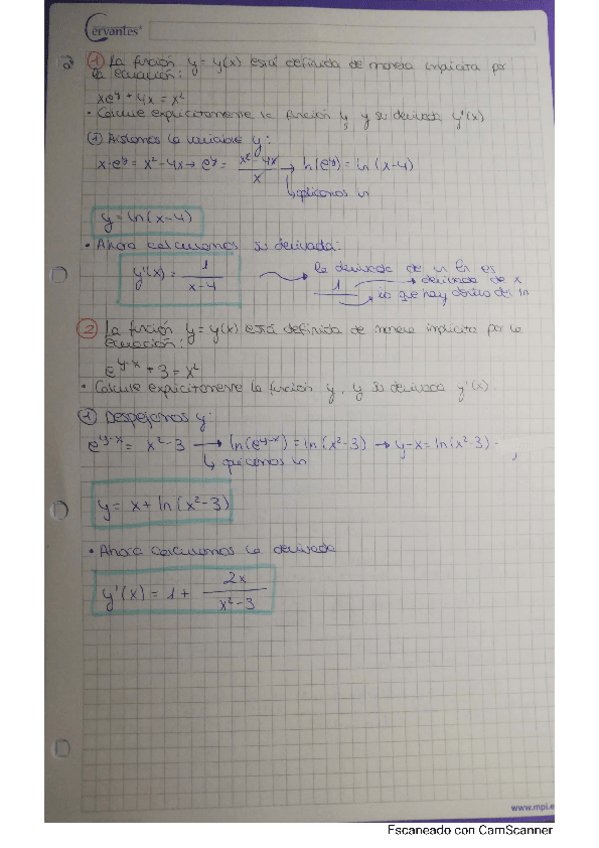 Cervantes
2 1 La función y = y(x) está definida de manera implícita por
la ecuación:
xe^y + 4x = x²
• Calcule explícitamente la función y, y su derivada y'(x)
1 Aislamos la variable y:
x·e^y = x² - 4x → e^y = (x² - 4x)/x → ln(e^y) = ln(x-4)
↳ aplicamos ln
y = ln(x-4)
• Ahora calculamos su derivada:
y'(x) = 1/(x-4)
la derivada de un ln es
1 → derivada de x
→ lo que hay dentro del ln
2 La función y = y(x) está definida de manera implícita por la
ecuación:
e^(y-x) + 3 = x²
• Calcule explícitamente la función y, y su derivada y'(x).
1 Despejamos y:
e^(y-x) = x² - 3 → ln(e^(y-x)) = ln(x²-3) → y-x = ln(x²-3).
↳ aplicamos ln
y = x + ln(x²-3)
• Ahora calculamos la derivada
y'(x) = 1 + 2x/(x²-3)
www.mpl.e
Escaneado con CamScanner